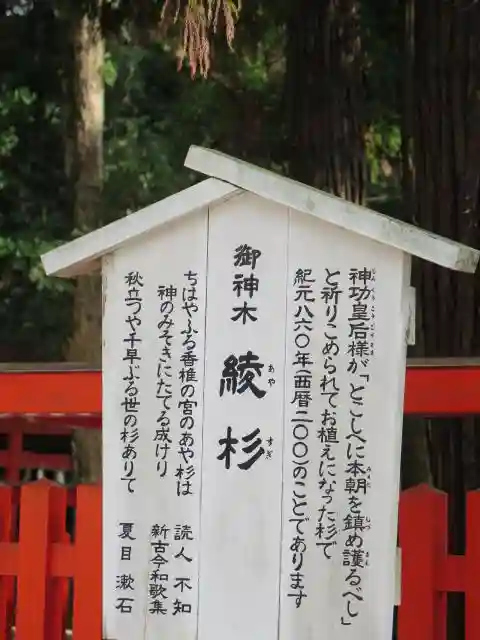 神功皇后様が「とこしへに本朝を鎮め護るべし」
と祈りこめられてお植えになった杉で
紀元八六〇年(西暦二〇〇)のことであります
御神木 綾杉
あや すぎ
ちはやふる香椎の宮のあや杉は 読人不知
神のみそきにたてる成けり 新古今和歌集
秋立つや千早ぶる世の杉ありて 夏目漱石